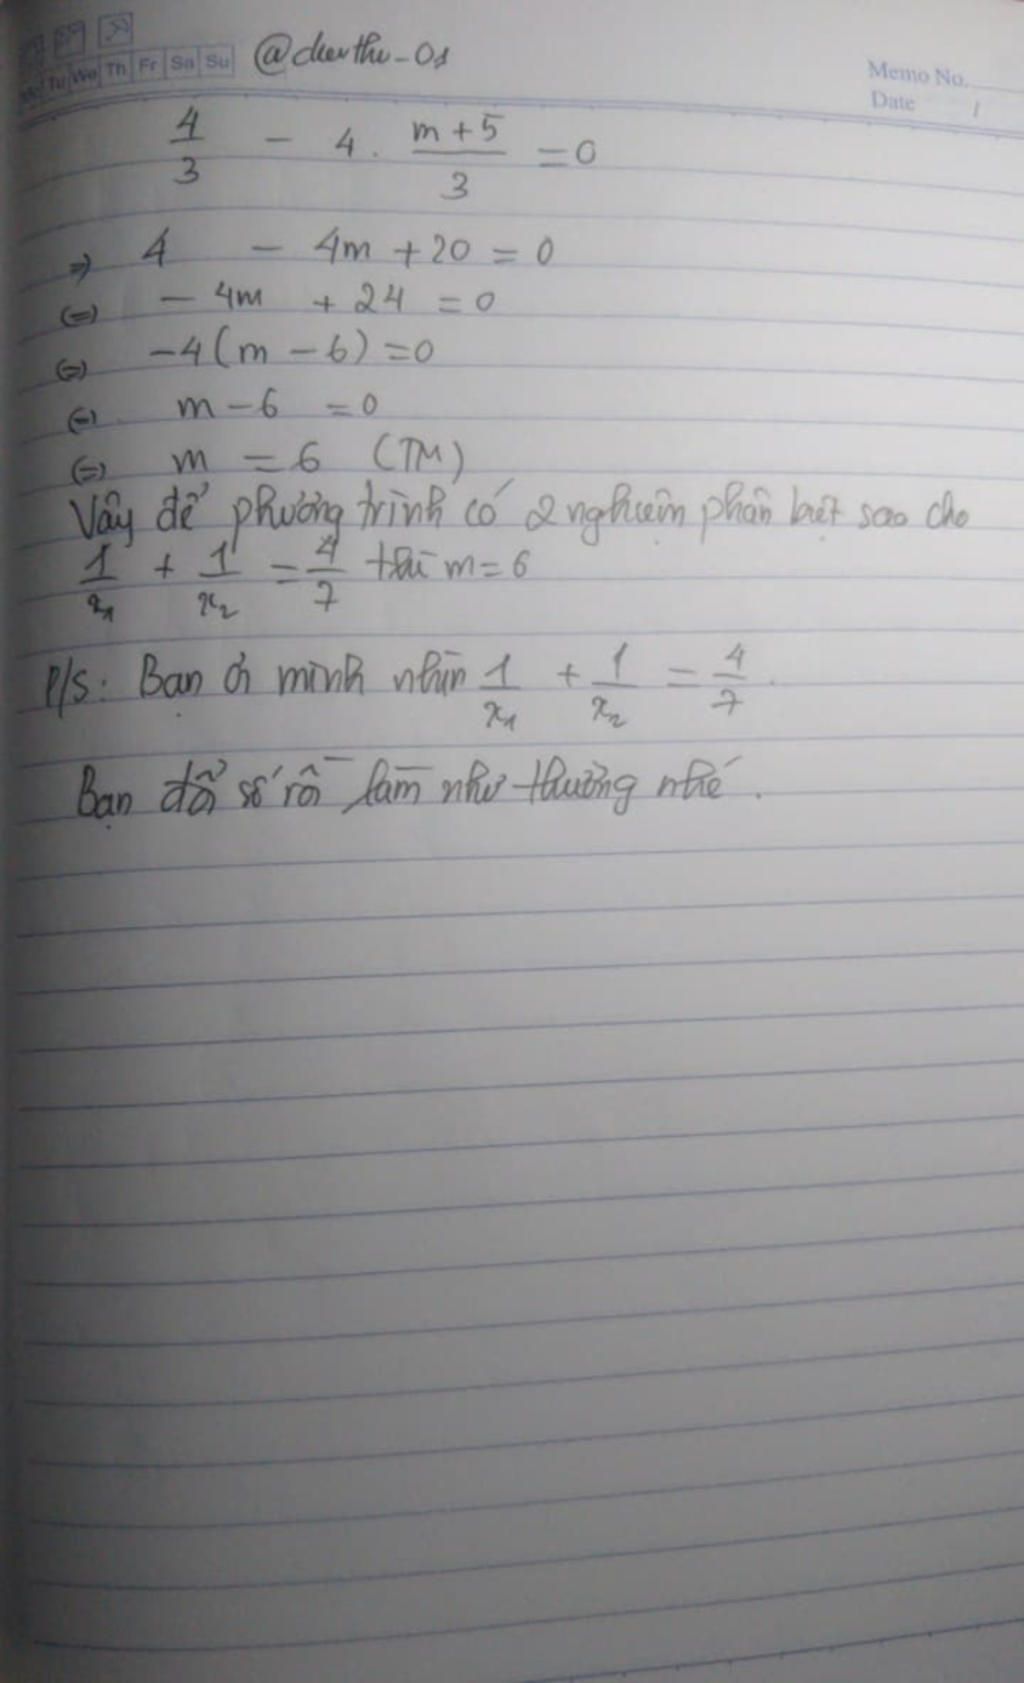 Tu We Th Fr Sa Su
Memo No.
Date /
4/3 - 4 . (m+5)/3 = 0
⇒ 4 - 4m + 20 = 0
⇔ - 4m + 24 = 0
⇔ -4(m - 6) = 0
⇔ m - 6 = 0
⇔ m = 6 (TM)
Vậy để phương trình có 2 nghiệm phân biệt sao cho
1/x₁ + 1/x₂ = 4/7 thì m = 6
P/S: Bạn ơi mình nhìn 1/x₁ + 1/x₂ = 4/7.
Bạn đổi số rồi làm như thường nhé.